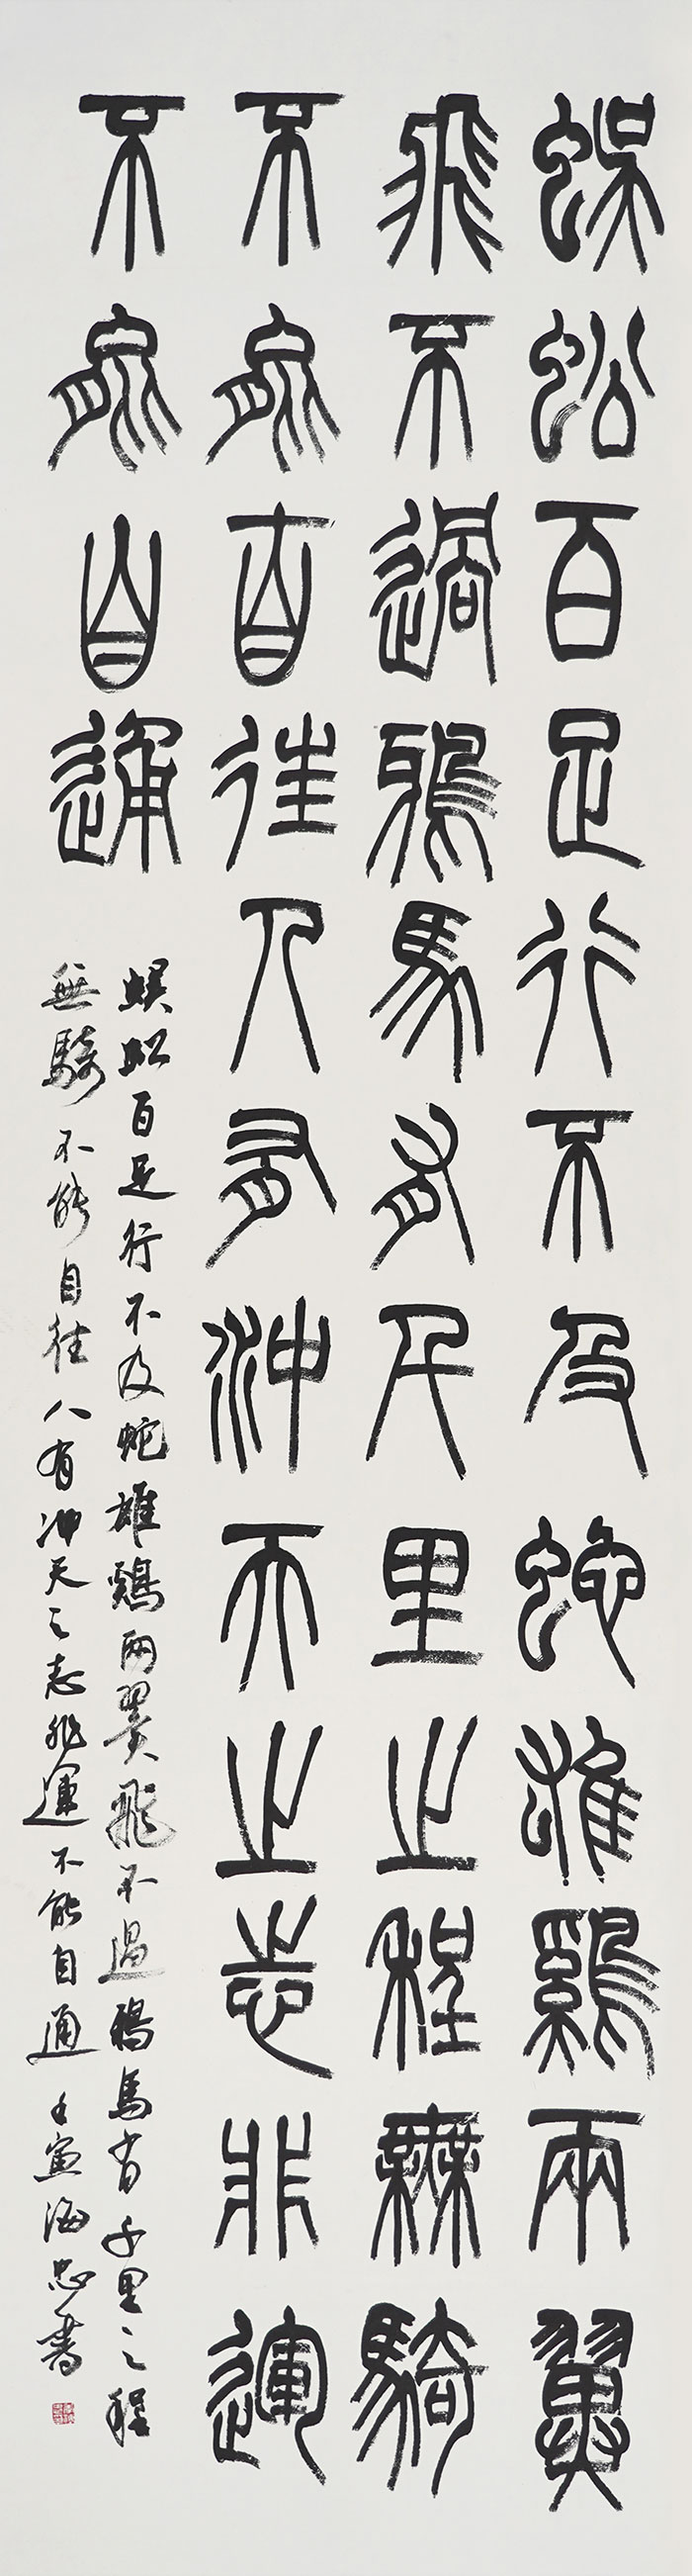 蜈蚣百足行不及蛇雄鷄兩翼
飛不過鴉馬有千里之程無騎
不能自往人有沖天之志非運
不能自通
蜈蚣百足行不及蛇雄鷄兩翼飛不過鴉馬有千里之程
無騎不能自往人有沖天之志非運不能自通 壬寅海忠書